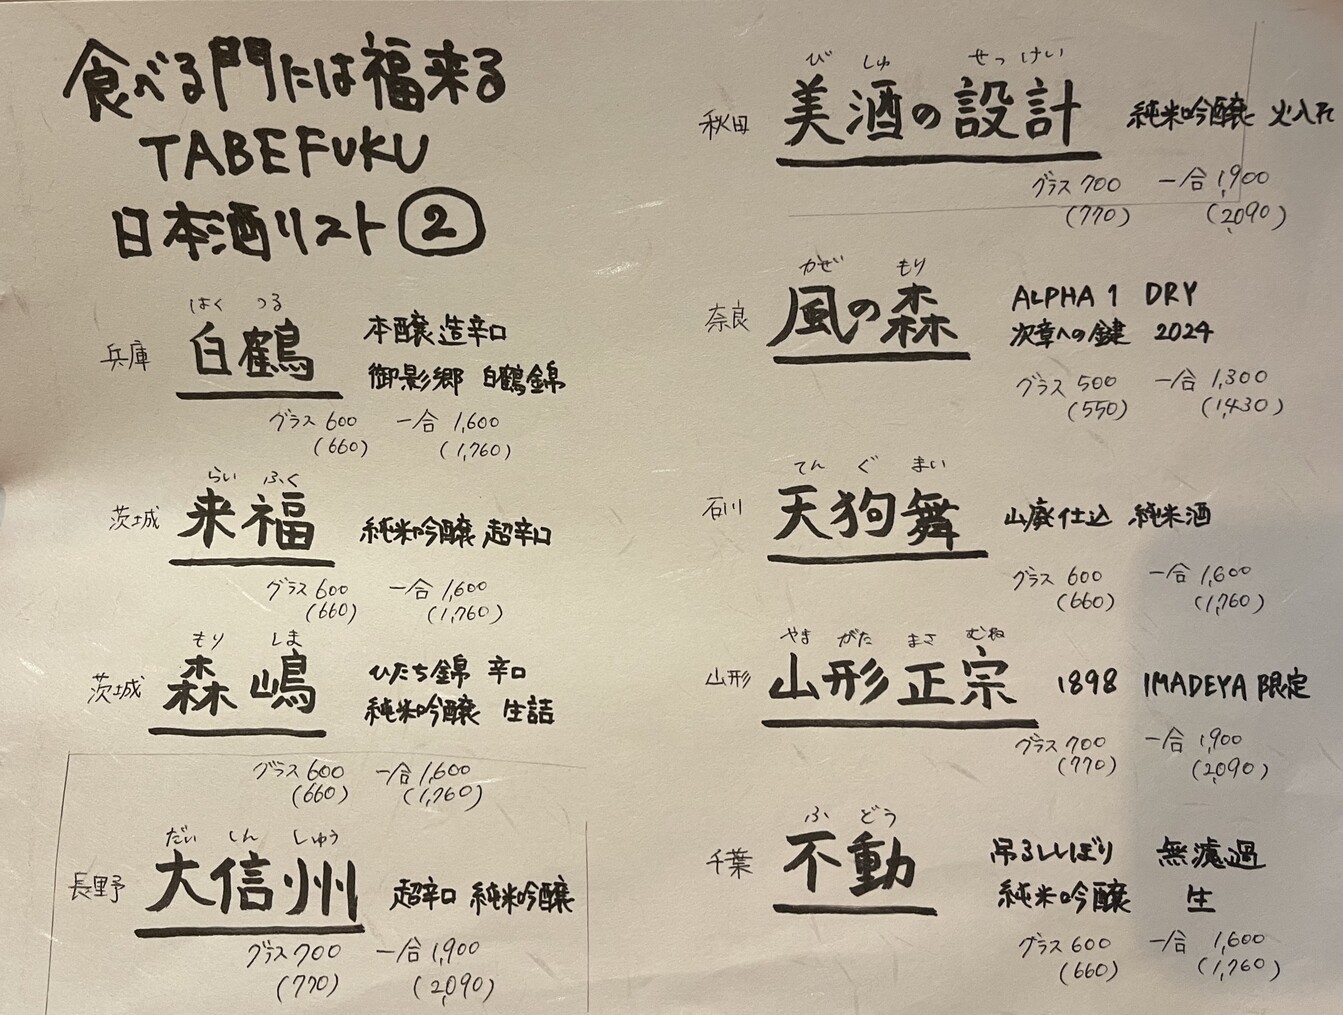 食べる門には福来る
TABEFUKU
日本酒リスト②
はく つる
兵庫 白鶴 本醸造辛口
御影郷 白鶴錦
グラス 600 一合 1,600
(660) (1,760)
らい ふく
茨城 来福 純米吟醸 超辛口
グラス 600 一合 1,600
(660) (1,760)
もり しま
茨城 森嶋 ひたち錦 辛口
純米吟醸 生詰
グラス 600 一合 1,600
(660) (1,760)
だい しん しゅう
長野 大信州 超辛口 純米吟醸
グラス 700 一合 1,900
(770) (2,090)
び しゅ せっ けい
秋田 美酒の設計 純米吟醸 火入れ
グラス 700 一合 1,900
(770) (2,090)
かぜ もり
奈良 風の森 ALPHA 1 DRY
次章への鍵 2024
グラス 500 一合 1,300
(550) (1,430)
てん ぐ まい
石川 天狗舞 山廃仕込 純米酒
グラス 600 一合 1,600
(660) (1,760)
やま がた まさ むね
山形 山形正宗 1898 IMADEYA 限定
グラス 700 一合 1,900
(770) (2,090)
ふ どう
千葉 不動 吊るししぼり 無濾過
純米吟醸 生
グラス 600 一合 1,600
(660) (1,760)